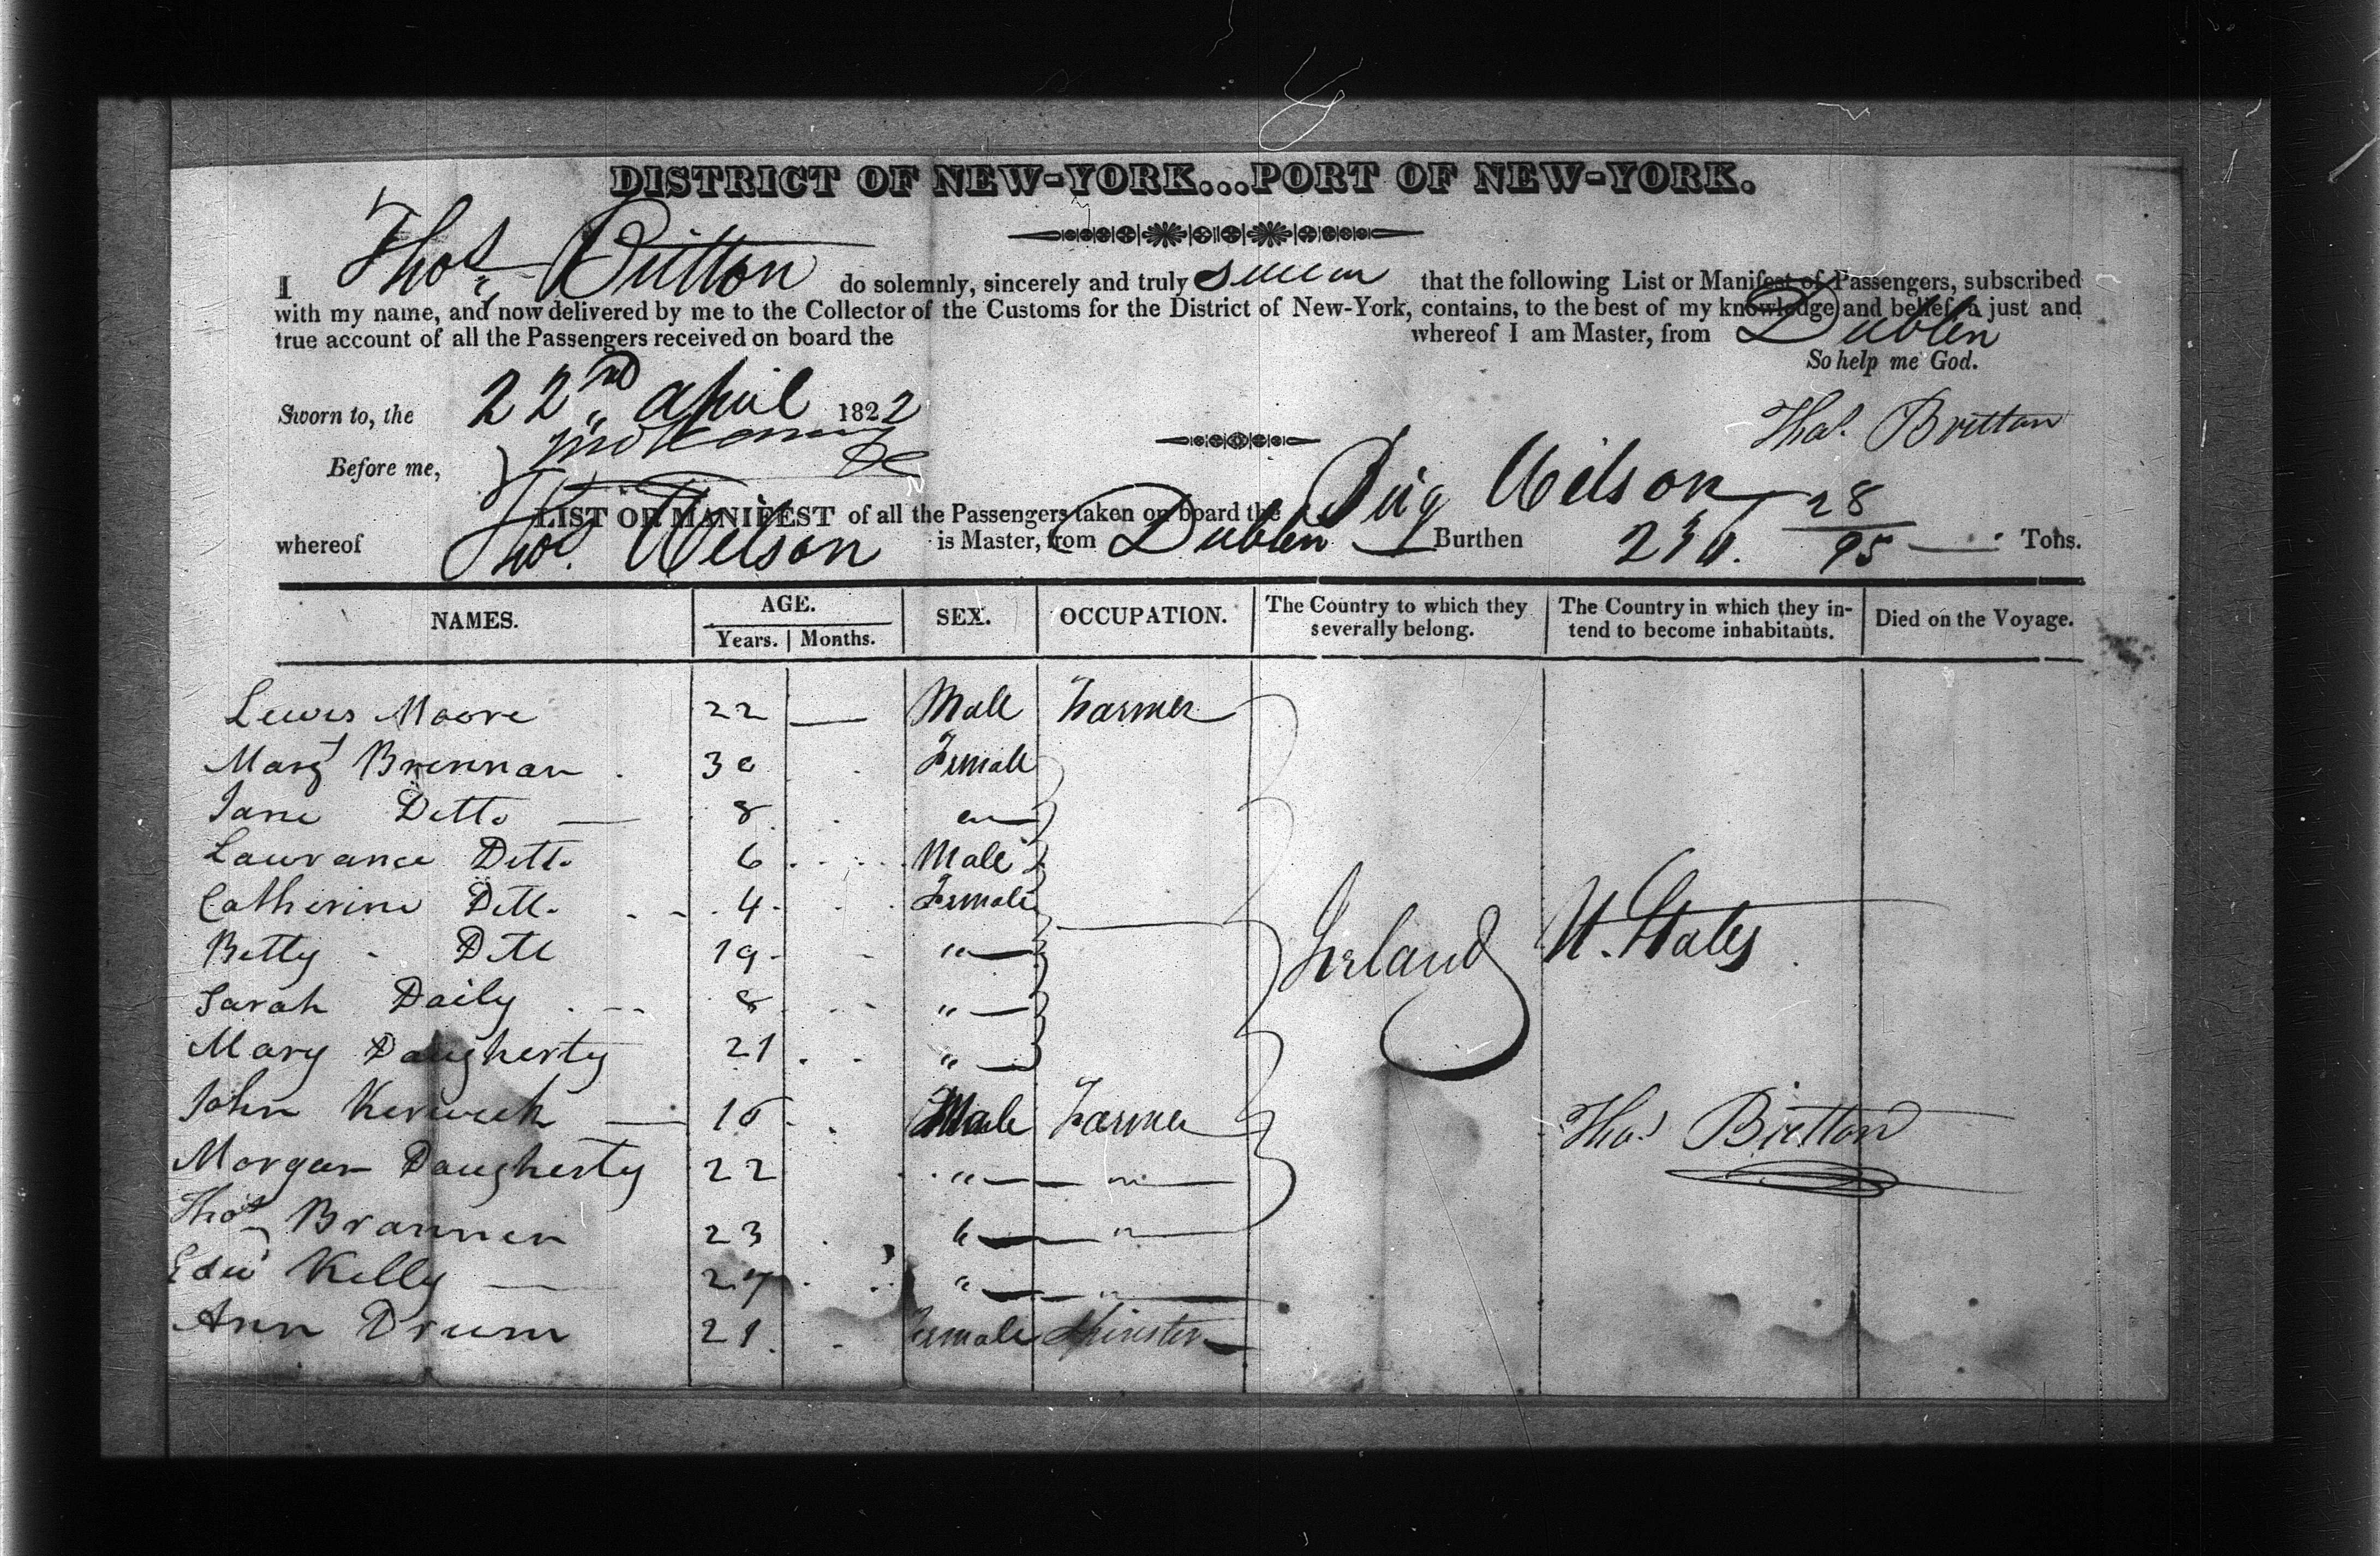 DISTRICT OF NEW-YORK...PORT OF NEW-YORK.
I Thos. Britton do solemnly, sincerely and truly swear that the following List or Manifest of Passengers, subscribed
with my name, and now delivered by me to the Collector of the Customs for the District of New-York, contains, to the best of my knowledge and belief, a just and
true account of all the Passengers received on board the whereof I am Master, from Dublin
So help me God.
Sworn to, the 22nd April 1822
Thos. Britton
Before me,
LIST OR MANIFEST of all the Passengers taken on board the Brig Wilson
whereof Thos. Wilson is Master, from Dublin Burthen 236. 28/95 Tons.
NAMES. AGE. SEX. OCCUPATION. The Country to which they severally belong. The Country in which they intend to become inhabitants. Died on the Voyage.
Years. Months.
Lewis Moore 22 — Male Farmer
Margt Brennan 30 Female
Jane Ditto — 8 "
Lawrance Ditto 6 Male
Catherine Ditt. 4 Female
Betty Ditt 19 "
Ireland U. States
Sarah Daily 8 "
Mary Daugherty 21 "
John Kerwick — 16 Male Farmer
Thos. Britton
Morgan Daugherty 22 " "
Thos Brannen 23 " "
Edwd Kelly — 27 " "
Ann Drum 21 Female Spinster